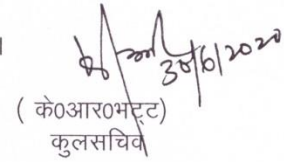 30/6/2020
( के0आर0भट्ट)
कुलसचिव